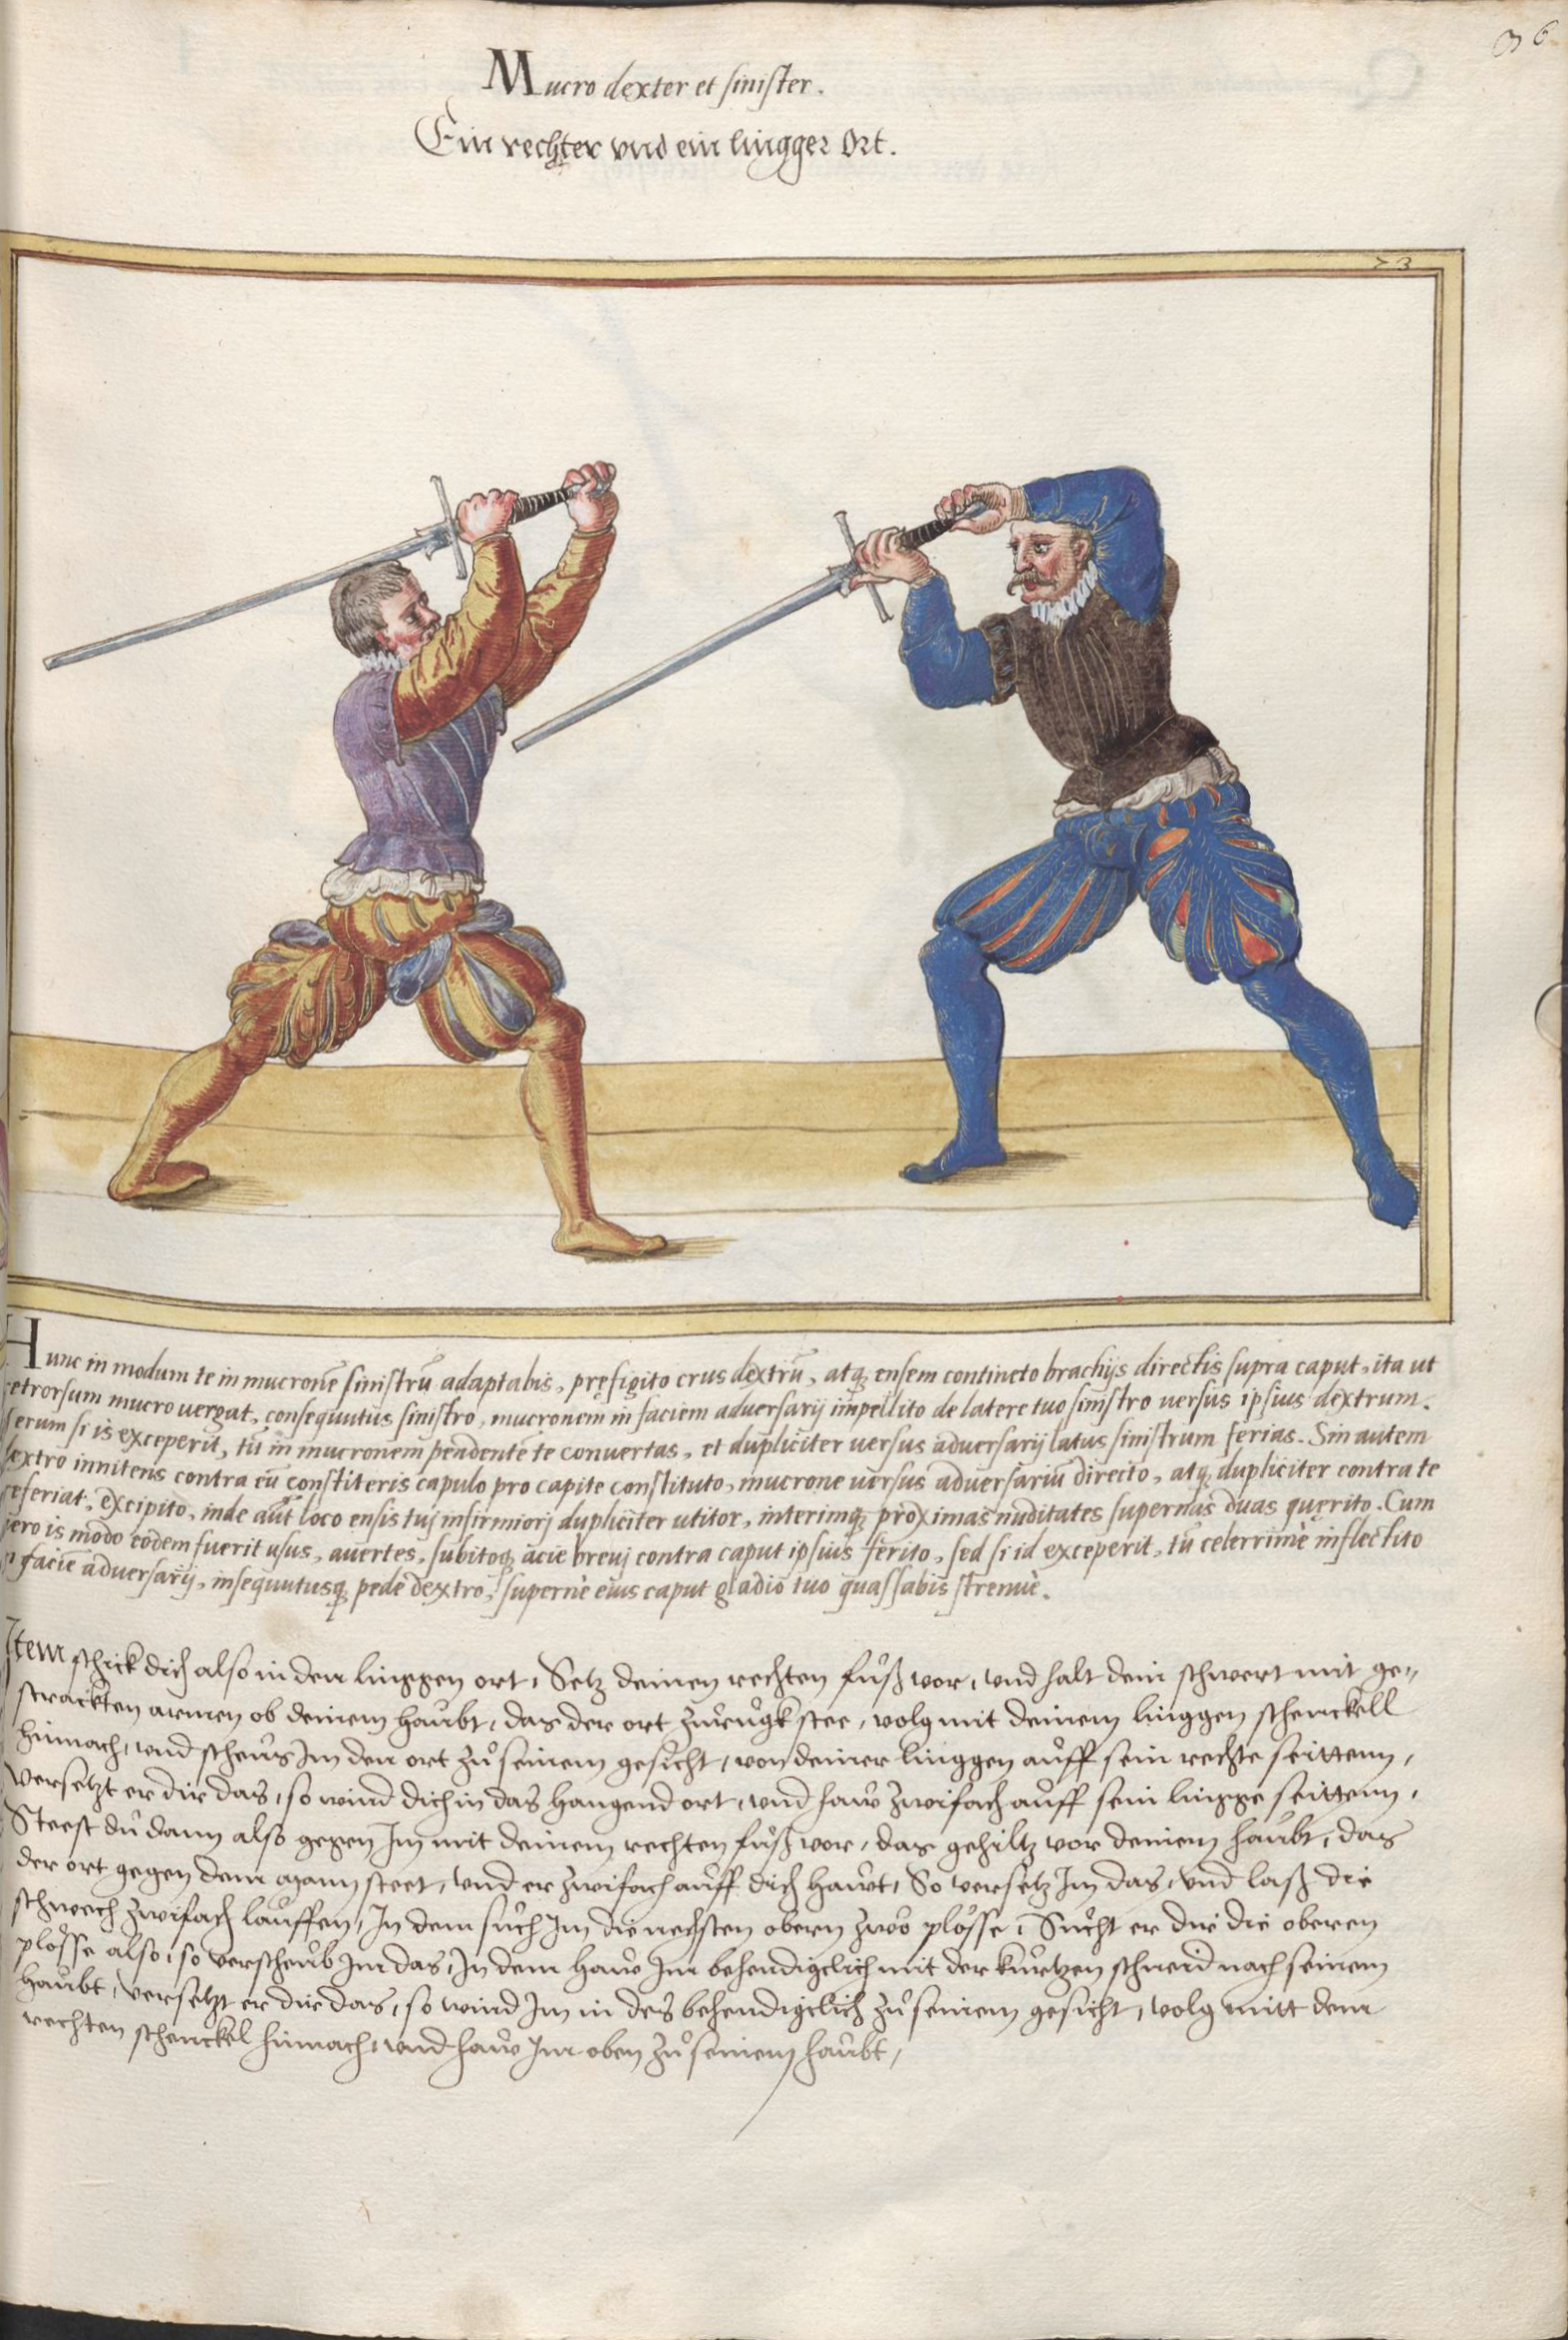 36
Mucro dexter et sinister.
Ein rechter vnd ein lingger Ort.
73
Hunc in modum te in mucronē sinistrū adaptabis, pręfigito crus dextrū, atq; ensem contineto brachijs directis supra caput, ita ut
retrorsum mucro uergat, consequutus sinistro, mucronem in faciem aduersarij impellito de latere tuo sinistro uersus ipsius dextrum.
Uerum si is exceperit, tū in mucronem pendentē te conuertas, et dupliciter uersus aduersarij latus sinistrum ferias. Sin autem
dextro innitens contra eū constiteris capulo pro capite constituto, mucrone uersus aduersariū directo, atq; dupliciter contra te
is feriat, excipito, inde aūt loco ensis tuj infirmiorj dupliciter utitor, interimq; proximas nuditates supernas duas quęrito. Cum
uero is modo eodem fuerit usus, auertes, subitoq; acie breuj contra caput ipsius ferito, sed si id exceperit, tū celerrimè inflectito
in facie aduersarij, insequutusq; pede dextro, supernè eius caput gladio tuo quassabis strenuè.
Item schick dich also in den linggen ort, Setz deinen rechten fuͦß vor, vnd halt dein schwert mit ge„
strackten armen ob deinem haubt, das der ort zuͦrugk stee, volg mit deinem linggen schenckell
hinnach, vnd scheuͦs Im den ort zuͦ seinem gesicht, von deiner linggen auff sein rechte seittenn,
versetzt er dir das, so wind dich in das hangend ort, vnd haw zwifach auff sein lingge seittenn,
Steest du dann also gegen Im mit deinem rechten fuͦß vor, das gehiltz vor deinem haubt, das
der ort gegen dem mann steet, vnd er zwifach auff dich hawt, So versetz Im das, vnd laß die
schwech zwifach lauffen, In dem suͦch Im die nechsten obern zwo plösse, Suͦcht er dir die oberen
plösse also, so verscheub Im das, In dem haw Im behendigclich mit der kurtzen schneid nach seinem
haubt, versetzt er dir das, so wind Im in des behendigclich zuͦ seinem gesicht, volg mitt dem
rechten schenckel hinnach, vnd haw Im oben zuͦ seinem haubt,